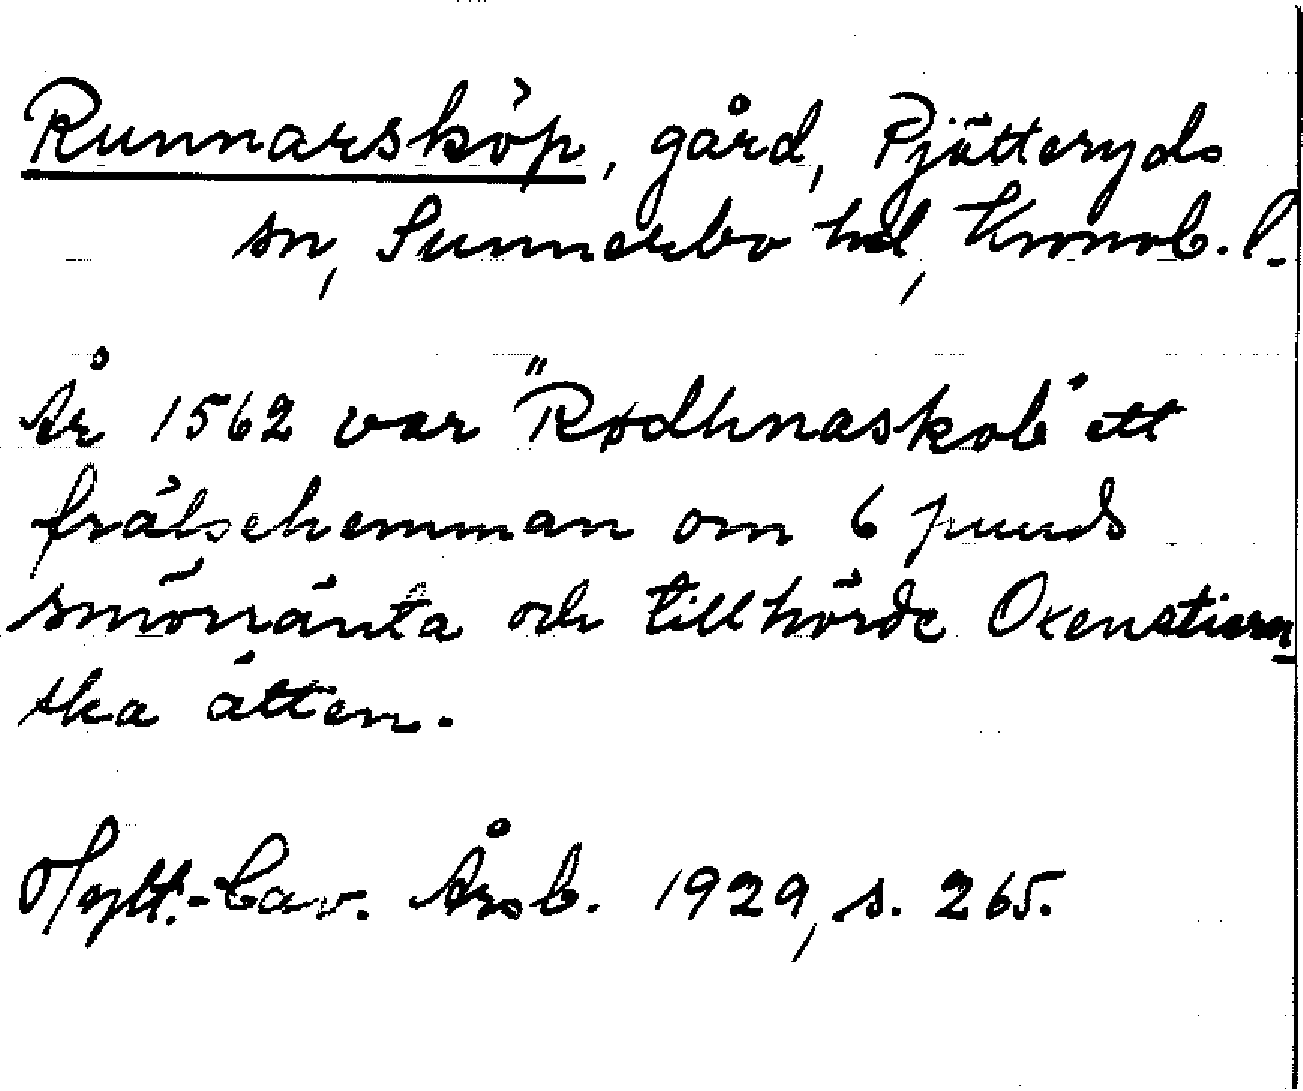 Runnarsköp, gård, Pjätteryds
sn, Sunnerbo hd, Kronob. l.
År 1562 var "Rødhnaskob" ett
frälsehemman om 6 punds
smörränta och tillhörde Oxenstiern
ska ätten.
Hylt.-Cav. Årsb. 1929, s. 265.